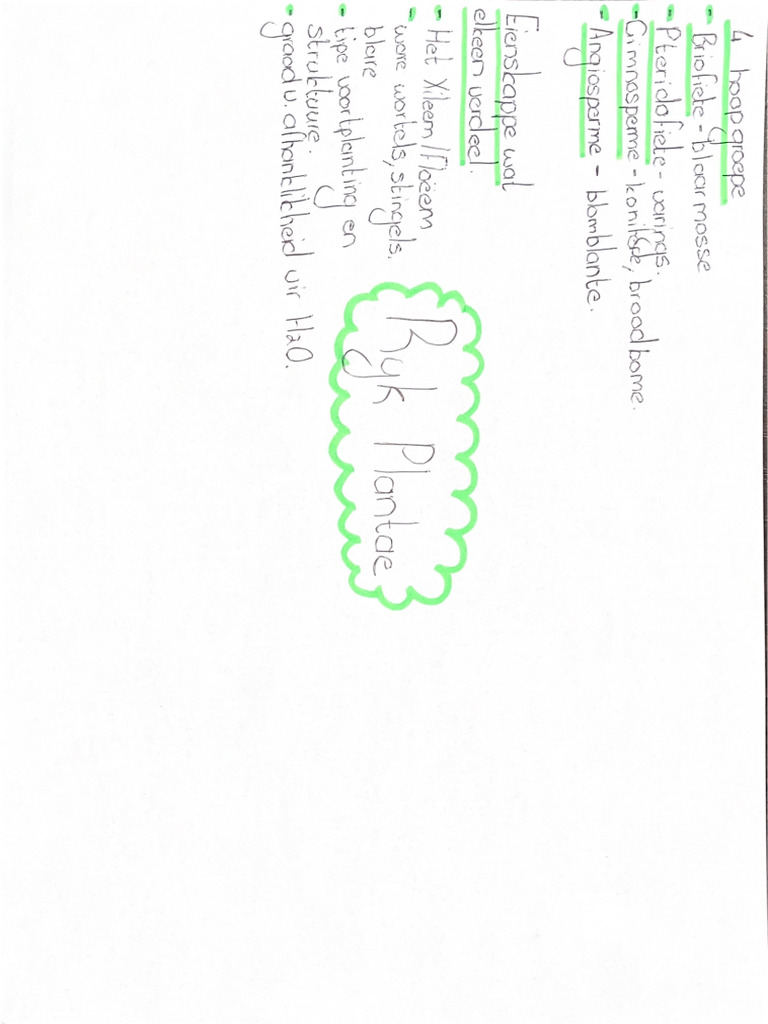 4 hoofgroepe
- Briofiete - blaarmosse
- Pteridofiete - varings.
- Gimnosperme - konifere, broodbome.
- Angiosperme - blomblante.
Eienskappe wat
elkeen verdeel.
- Het Xileem / Floëem
- ware wortels, stingels.
blare
- tipe voortplanting en
strukture.
- graad v. afhanklikheid vir H2O.
Ryk Plantae